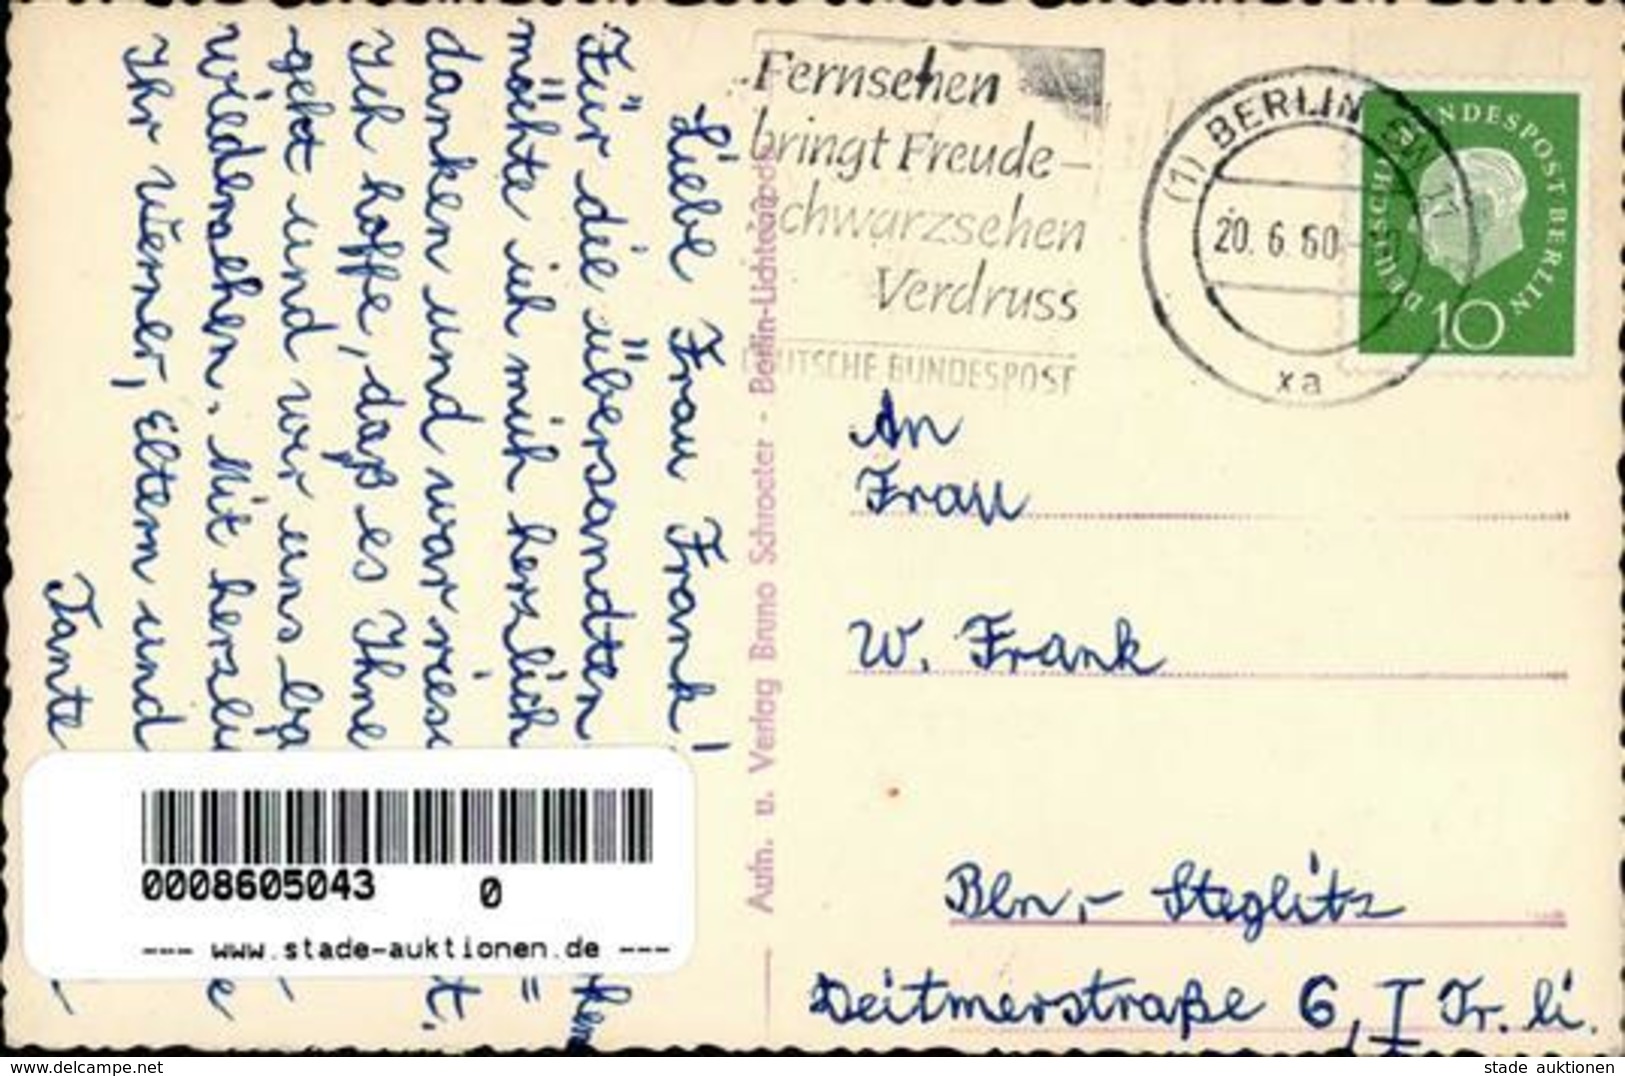 Liebe Frau Frank!
Für die übersandten
möchte ich mich herzlich
danken und war
Ich hoffe, daß es Ihne
geht und wir uns
wiedersehen. Mit herzli
Ihr Werner, Eltern und
Tante
Fernsehen
bringt Freude –
Schwarzsehen
Verdruss
DEUTSCHE BUNDESPOST
(1) BERLIN
20.6.60
xa
DEUTSCHE BUNDESPOST BERLIN
10
Aufn. u. Verlag Bruno Schroeter - Berlin-Lichterfelde
An
Frau
W. Frank
Bln,- Steglitz
Deitmerstraße 6, I Tr. li.
0008605043 0
--- www.stade-auktionen.de ---
www.delcampe.net
stade auktionen